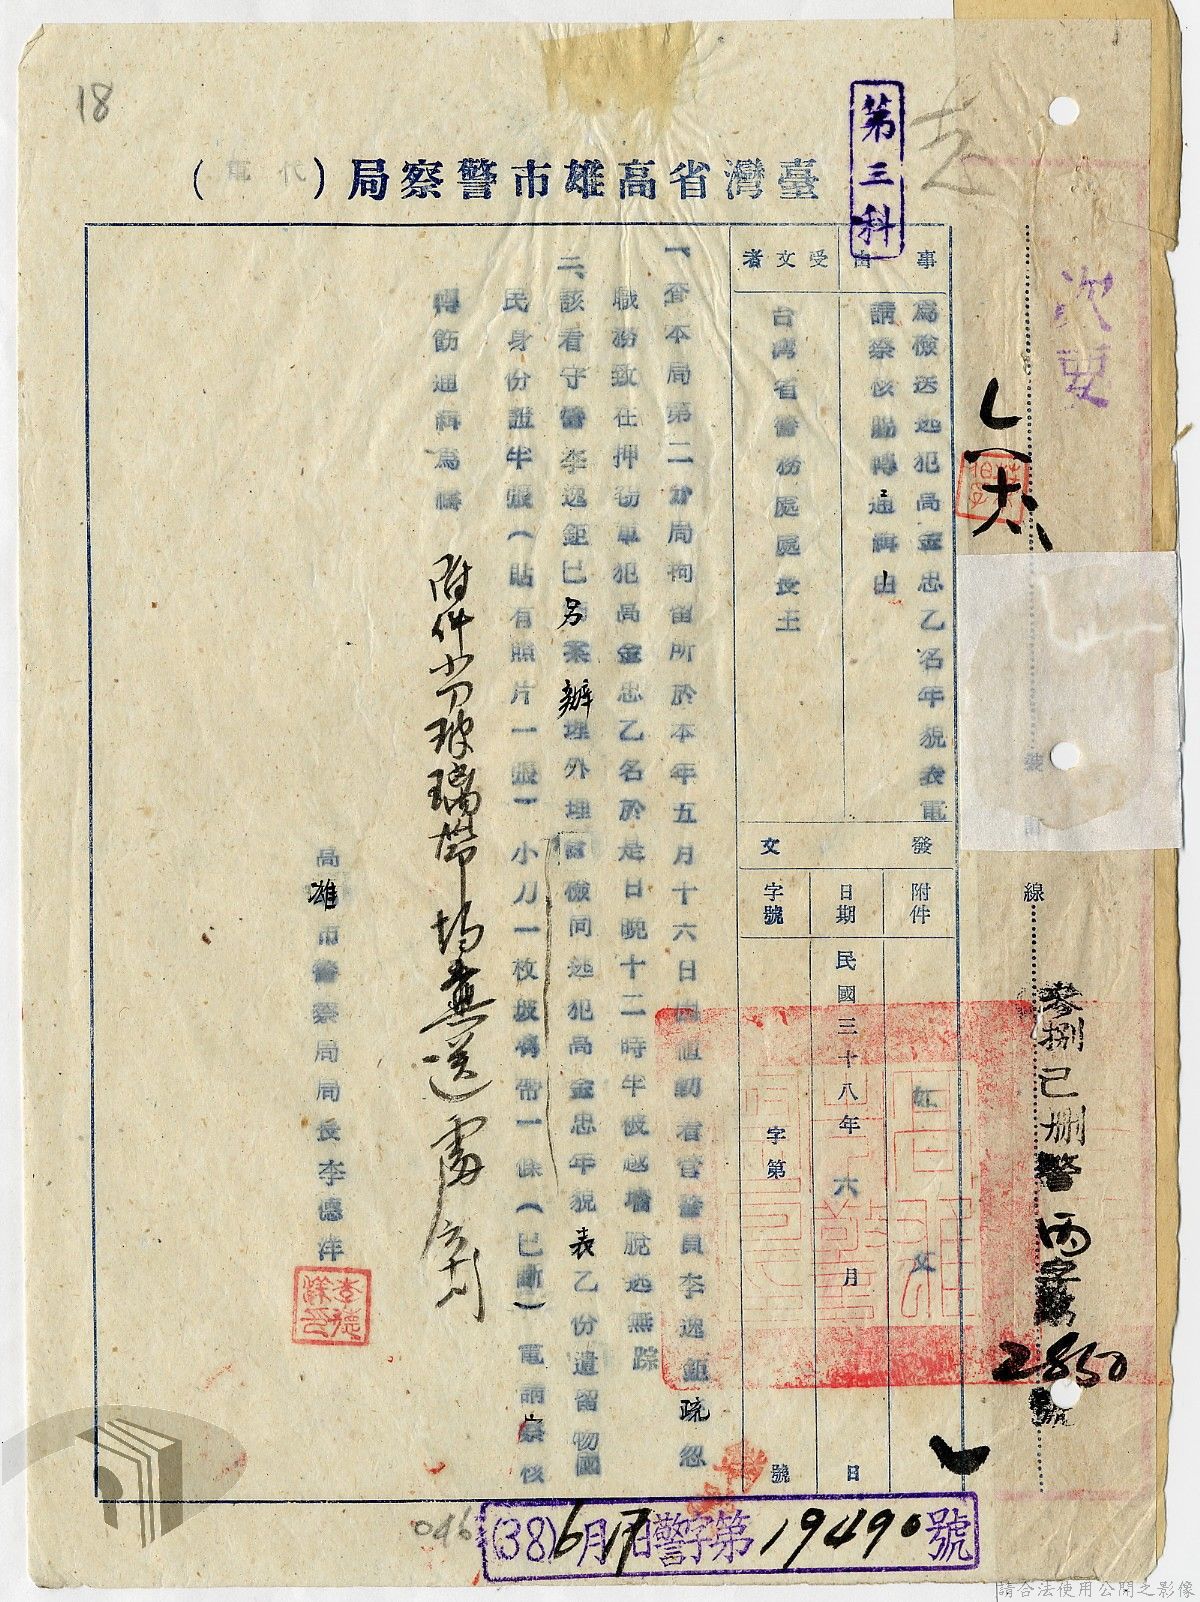 18
臺灣省高雄市警察局（代電）
第三科
次要
事由
為檢送逃犯高金忠乙名年貌表電
請察核賜轉通緝由
受文者
台灣省警務處處長王
發文
附件
如文
日期
民國三十八年六月 日
字號
字第 號
一、查本局第二分局拘留所於本年五月十六日由值勤看管警員李逸鉅疏忽
職務致在押竊車犯高金忠乙名於是日晚十二時半被越墻脫逃無踪
二、該看守警李逸鉅已另案辦理外理合檢同逃犯高金忠年貌表乙份遺留物國
民身份證半張（貼有照片一張）小刀一枚玻璃帶一條（已斷）電請察核
轉飭通緝為禱
附件小刀玻璃帶均彙送
高雄市警察局局長李德洋
裝
線
參捌已刪警丙字第
2850
號
(38)6月17日警字第19490號
046
請合法使用公開之影像